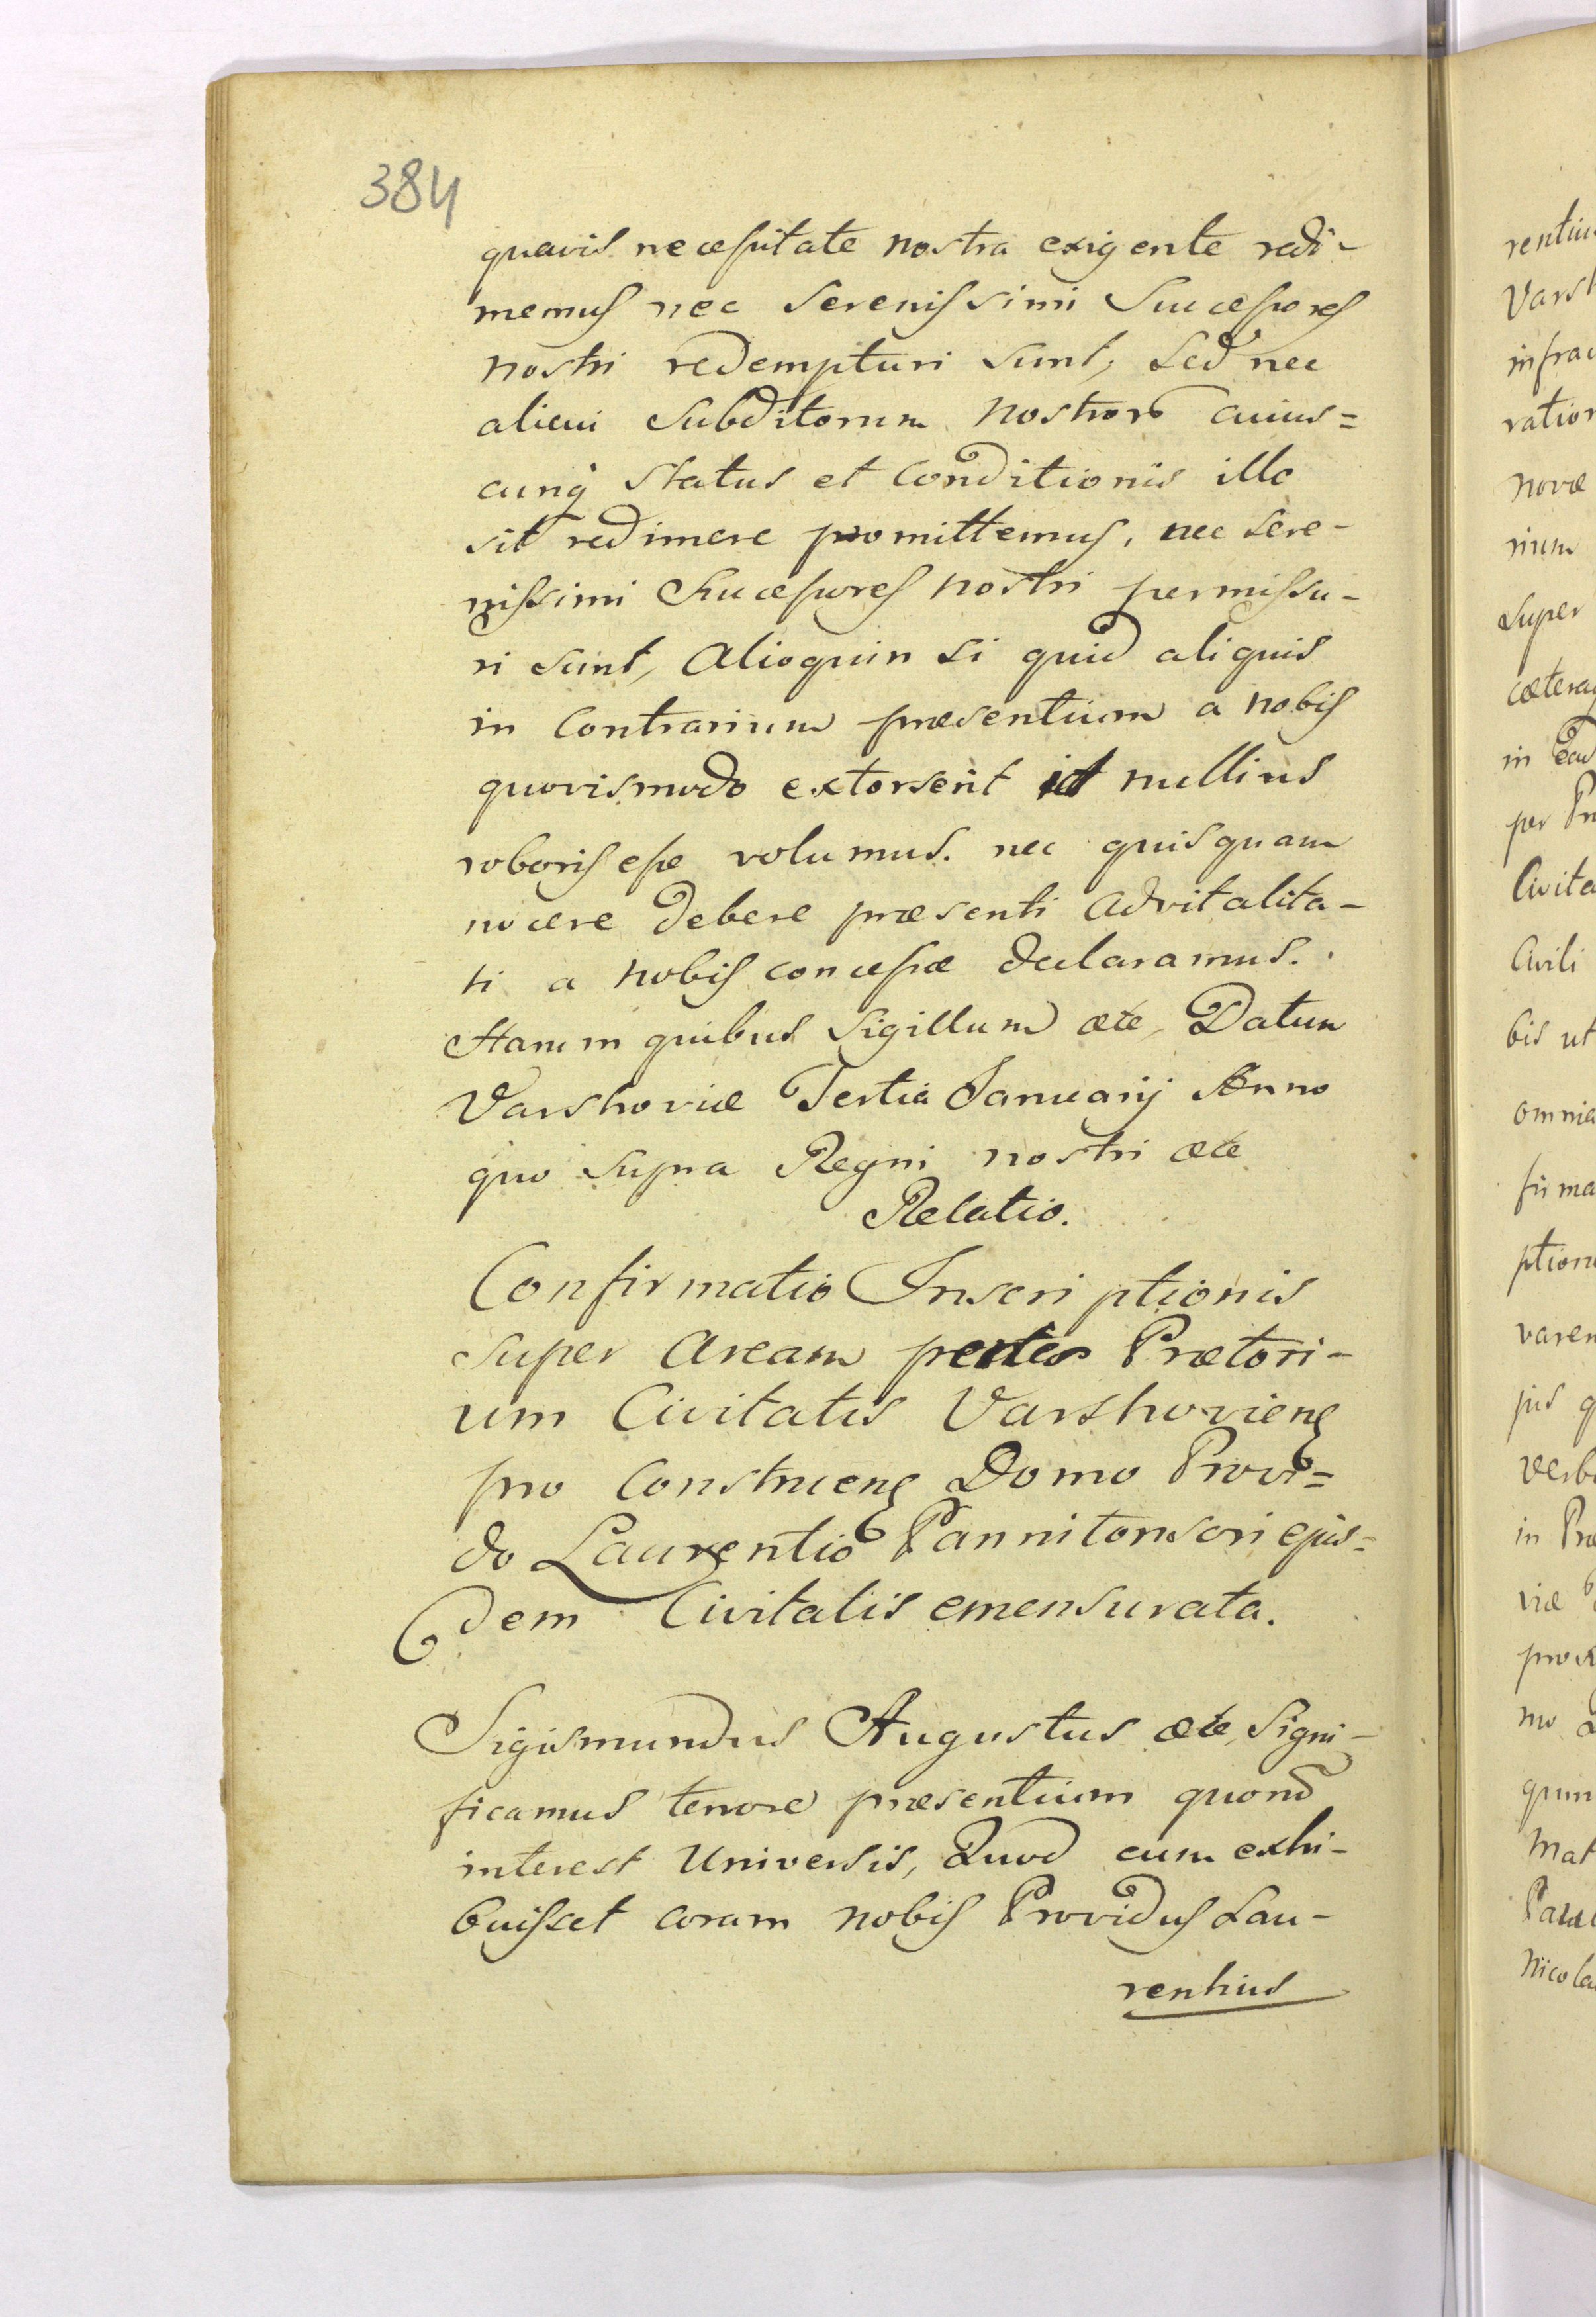 384
quavis necessitate nostra exigente redi-
memus nec Serenissimi Successores
nostri redempturi sunt, sed nec
alicui Subditorum nostror cuius=
cunq status et Conditionis ille
sit redimere promittemus, nec sere-
nissimi Successores nostri permissu-
ri sunt, Alioquin si quid aliquis
in Contrarium præsentium a nobis
quovismodo extorserit id nullius
roboris esse volumus. nec quisquam
nocere debere præsenti advitalita-
ti a nobis concessæ declaramus.
Harum quibus Sigillum etc, Datum
Varshoviæ Tertia Januarij Anno
quo supra Regni nostri etc
Relatio.
Confirmatio Inscriptionis
super Aream Prætori-
um Civitatis Varshoviens
pro Construens Domo Provi=
do Laurentio Pannitonsori ejus=
dem Civitatis emensurata.
Sigismundus Augustus etc, Signi-
ficamus tenore præsentium quond
interest Universis, Quod cum exhi-
buisset coram nobis Providus Lau-
rentius
rentiu
Varsh
infra
ration
novæ
rium
super
cætera
in
per Pr
Civita
Civili
bis ut
omnia
firma
ption
varen
jus q
verb
in Præ
viæ
mo
quin
Mat
Nicola